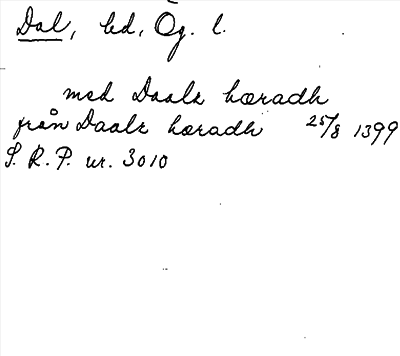 Dal, hd, Ög. l.
med Daalz hæradh
från Daalz hæradh 25/8 1399
S. R. P. nr. 3010